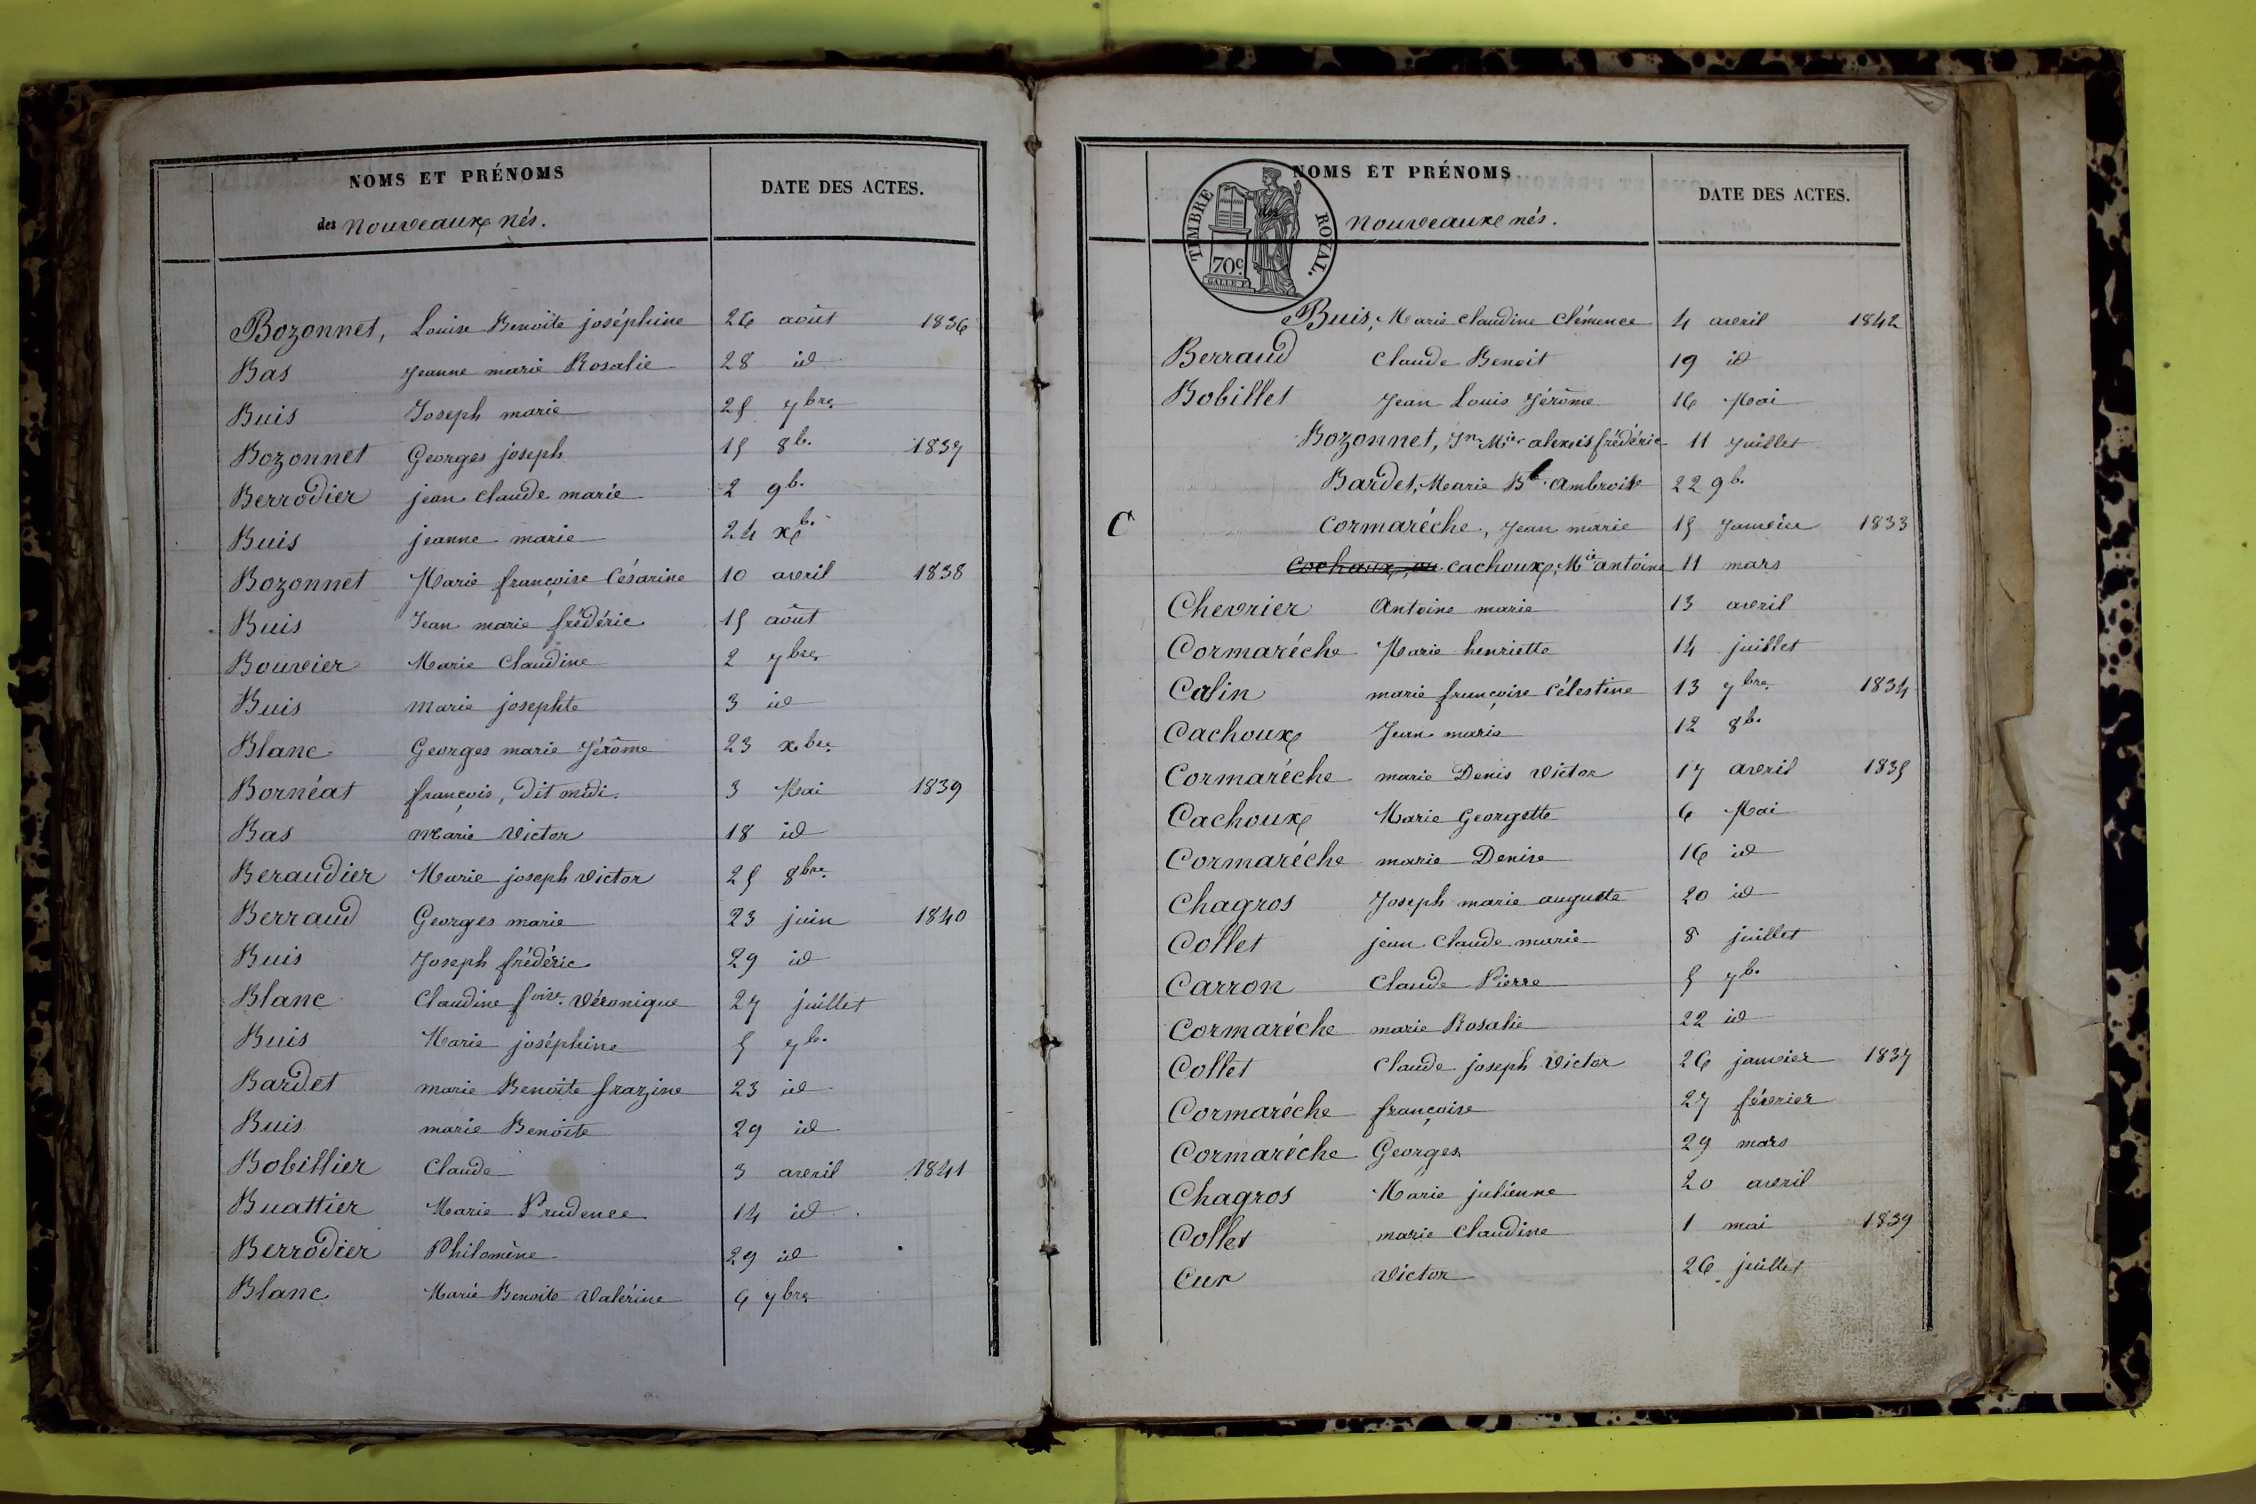 NOMS ET PRÉNOMS
DATE DES ACTES.
des nouveaux nés.
Bozonnet, Louise Benoite joséphine 26 août 1836
Bas Jeanne marie Rosalie 28 id
Buis Joseph marie 25 7bre
Bozonnet Georges joseph 15 8b. 1837
Berrodier jean claude marie 2 9b.
Buis jeanne marie 24 xb.
Bozonnet Marie françoise Césarine 10 avril 1838
Buis Jean marie frédéric 15 août
Bouvier Marie Claudine 2 7bre
Buis Marie josephte 3 id
Blanc Georges marie Jérôme 23 xbre
Bornéat françois, dit midi. 3 Mai 1839
Bas Marie Victor 18 id
Beraudier Marie joseph victor 25 8bre
Berraud Georges marie 23 juin 1840
Buis Joseph frédéric 29 id
Blanc Claudine foise Véronique 27 juillet
Buis Marie joséphine 5 7b.
Bardet marie Benoite frazine 23 id
Buis marie Benoite 29 id
Bobillier Claude 3 avril 1841
Buattier Marie Prudence 14 id
Berrodier Philomène 29 id
Blanc Marie Benoite Valérine 9 7bre
NOMS ET PRÉNOMS
DATE DES ACTES.
des nouveaux nés.
TIMBRE ROYAL.
70c
Buis, Marie claudine clémence 4 avril 1842
Berraud Claude Benoit 19 id
Bobillet Jean Louis Jérôme 16 Mai
Bozonnet, Jn Mie alexis frédéric 11 Juillet
Bardet, Marie Bt. ambroise 22 9b.
C Cormaréche, Jean marie 15 Janvier 1833
Cochaux, ou Cachoux, Mie antoine 11 mars
Chevrier Antoine marie 13 avril
Cormaréche Marie henriette 14 juillet
Calin marie françoise Célestine 13 7bre 1834
Cachoux Jean marie 12 8b.
Cormaréche marie Denis victor 17 avril 1835
Cachoux Marie Georgette 6 Mai
Cormaréche marie Denise 16 id
Chagros Joseph marie auguste 20 id
Collet jean Claude marie 8 juillet
Carron Claude Pierre 5 7b.
Cormaréche marie Rosalie 22 id
Collet Claude joseph Victor 26 janvier 1837
Cormaréche françoise 27 février
Cormaréche Georges 29 mars
Chagros Marie julienne 20 avril
Collet marie Claudine 1 mai 1839
Cur Victor 26 juillet